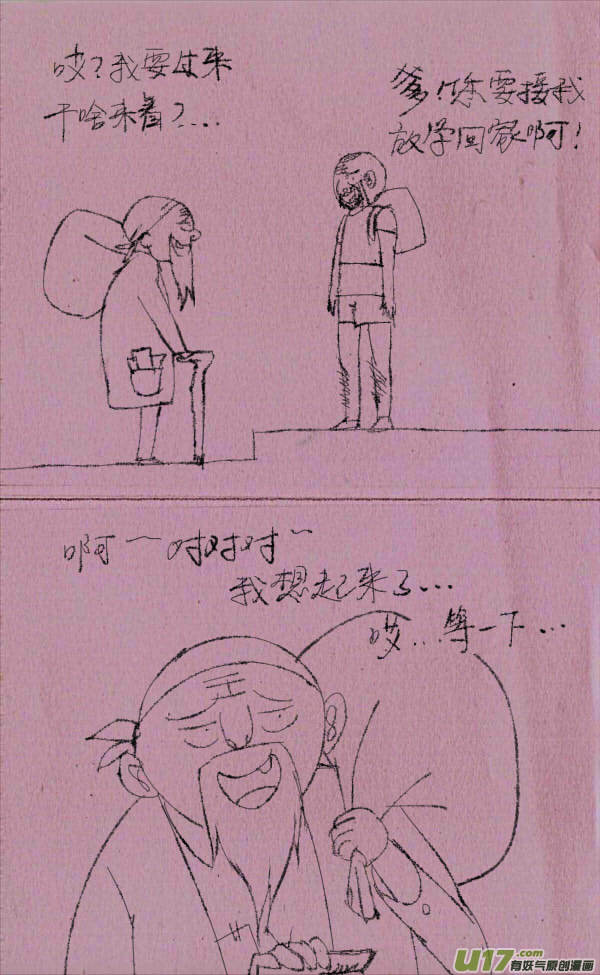 哎?我要过来
干啥来着?...
爹!您要接我
放学回家啊!
啊~对对对~
我想起来了...
哎...等一下...
王
U17.com
有妖气原创漫画